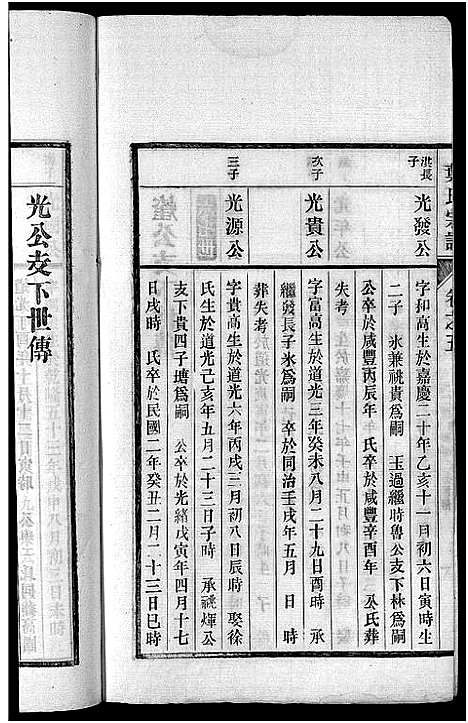 洪長子
光發公
字和高生於嘉慶二十年乙亥十一月初六日寅時生
二子 氷兼祧貴爲嗣 玉過繼時魯公支下林爲嗣
公卒於咸豐丙辰年 氏卒於咸豐辛酉年 公氏葬
失考
次子
光貴公
字富高生於道光三年癸未八月二十九日酉時 承
繼發長子氷爲嗣 卒於同治壬戌年五月 日 時
葬失考
三子
光源公
字貴高生於道光六年丙戌三月初八日辰時 娶徐
氏生於道光己亥年五月二十三日子時 承祧煇公
支下貴四子塘爲嗣 公卒於光緒戊寅年四月十七
日戌時 氏卒於民國二年癸丑二月二十三日巳時
光公支下世傳